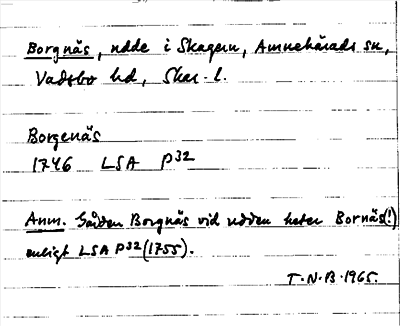 Borgnäs, udde i Skagern, Amnehärads sn,
Vadsbo hd, Skar. l.
Borgenäs
1746 LSA P32
Anm. Gården Borgnäs vid udden heter Bornäs(!)
enligt LSA P32 (1755).
T.N.B. 1965.